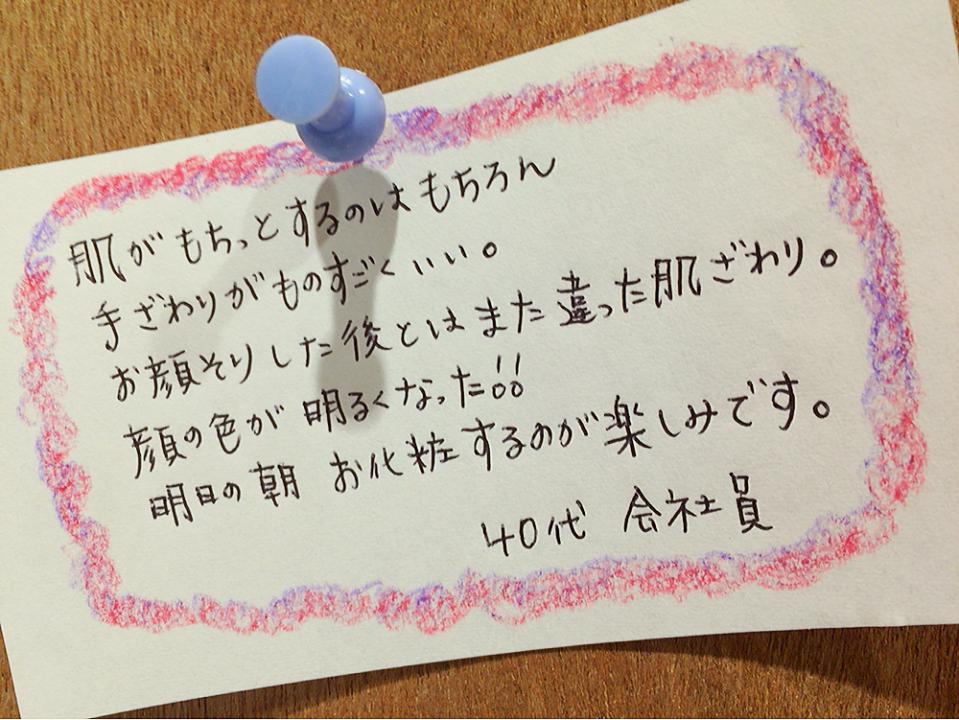 肌がもちっとするのはもちろん
手ざわりがものすごくいい。
お顔そりした後とはまた違った肌ざわり。
顔の色が明るくなった!!
明日の朝 お化粧するのが楽しみです。
40代 会社員